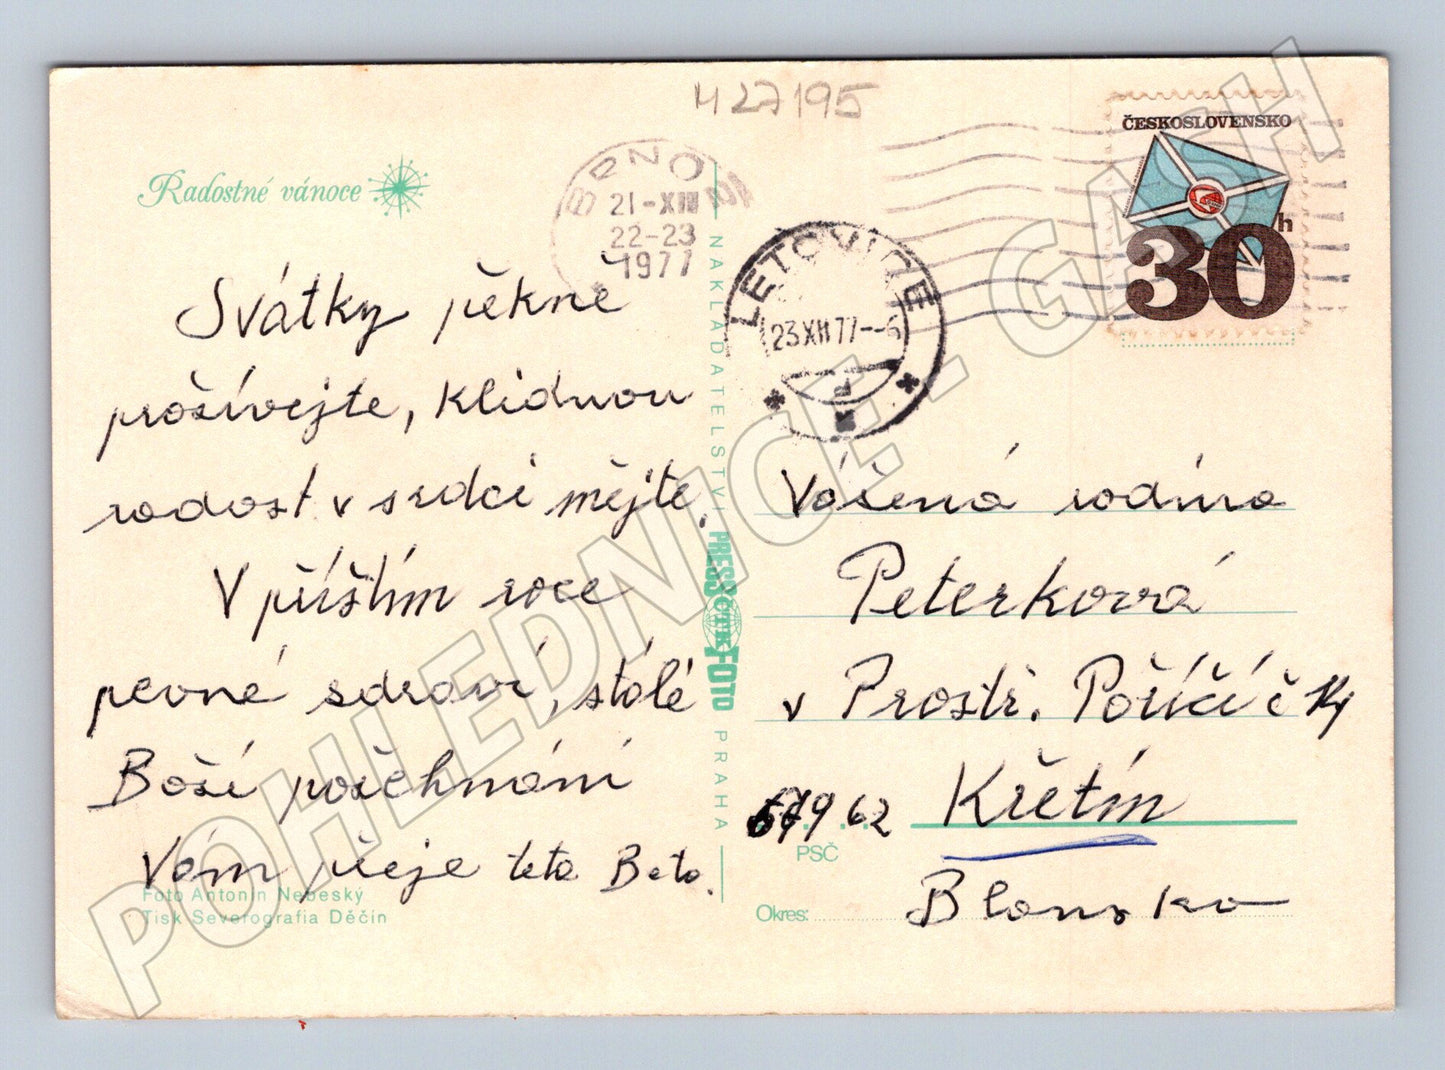 427195
Radostné vánoce
Svátky pěkně
prožívejte, klidnou
radost v srdci mějte.
V příštím roce
pevné zdraví, stálé
Boží požehnání
Vám přeje teta Beta.
Foto Antonín Nebeský
Tisk Severografia Děčín
BRNO
21-XII
22-23
1977
NAKLADATELSTVÍ PRESSFOTO ČTK PRAHA
LETOVICE
23 XII 77--6
ČESKOSLOVENSKO
30h
Vážená rodina
Peterková
v Prostř. Poříčí č
Křetín
679 62
PSČ
Okres:
Blansko
POHLEDNICE - GASH